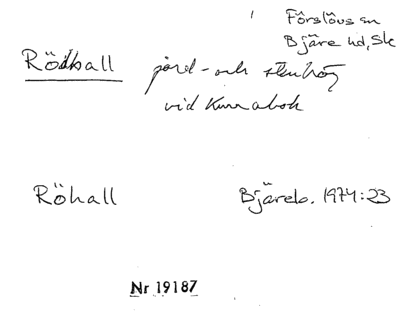 Förslövs sn
Bjäre hd, Sk
Rödhall jord- och stenhög
vid Kurrabok
Röhall Bjäreb. 1974:23
Nr 19187